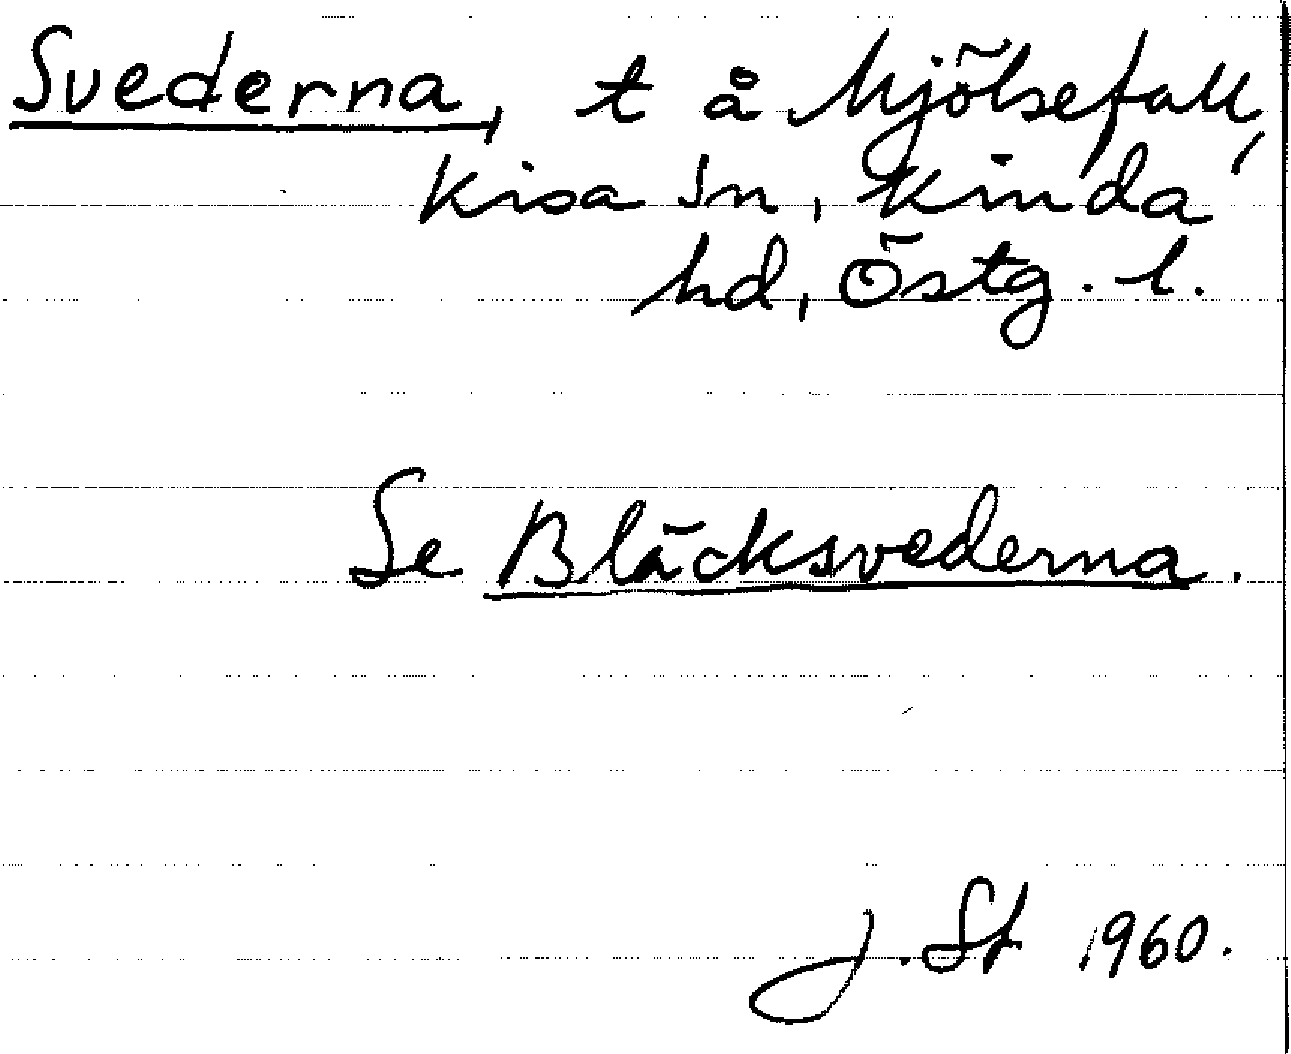 Svederna, t å Mjölsefall,
Kisa sn, Kinda
hd, Östg. l.
Se Bläcksvederna.
J. St 1960.